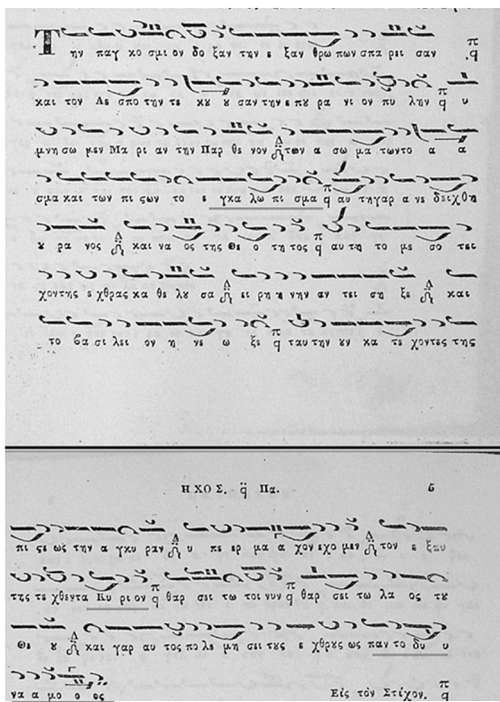 Την παγ κο σμι ον δο ξαν την ε ξαν θρω πων σπα ρει σαν
και τον Δε σπο την τε κου ου σαν την ε που ρα νι ον πυ λην υ
μνη σω μεν Μα ρι αν την Παρ θε νον των α σω μα των το α α
σμα και των πι ϛων το ε γκα λω πι σμα αυ τη γαρ α νε δει χθη
ου ρα νος και να ος της Θε ο τη τος αυ τη το με σο τει
χον της ε χθρας κα θε λου σα ει ρη η νην αν τει ση ξε και
το βα σι λει ον η νε ω ξε ταυ την ουν κα τε χον τες της
ΗΧΟΣ. Πα.
πι ϛε ως την α γκυ ραν υ πε ερ μα α χον ε χο μεν τον ε ξαυ
της τε χθεντα Κυ ρι ον θαρ σει τω τοι νυν θαρ σει τω λα ος του
Θε ου και γαρ αυ τος πο λε μη σει τους ε χθρους ως παν το δυ υ
να α μο ο ος Εἰς τὸν Στίχον.